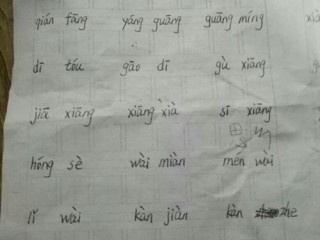 qián fāng yáng guāng guāng míng
dī tóu gāo dī gù xiāng
jiā xiāng xiāng xià sī xiāng
hóng sè wài miàn mén wài
lǐ wài kàn jiàn kàn zhe